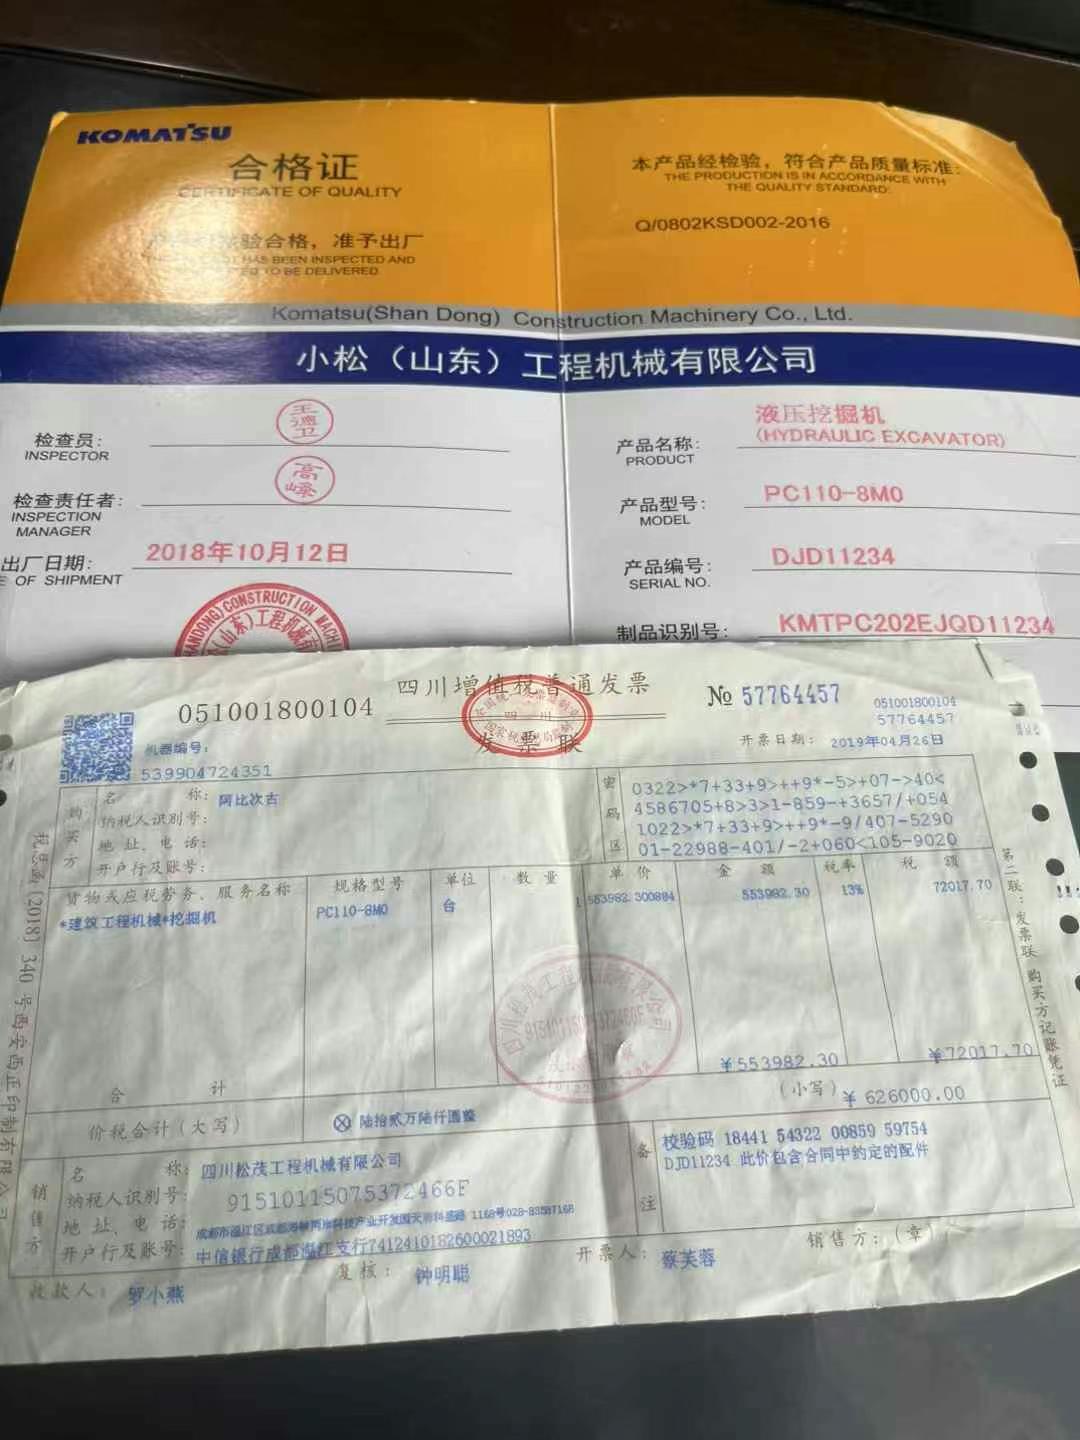 KOMATSU
合格证
CERTIFICATE OF QUALITY
检验合格，准予出厂
HAS BEEN INSPECTED AND
TO BE DELIVERED
本产品经检验，符合产品质量标准：
THE PRODUCTION IS IN ACCORDANCE WITH
THE QUALITY STANDARD:
Q/0802KSD002-2016
Komatsu(Shan Dong) Construction Machinery Co., Ltd.
小松（山东）工程机械有限公司
检查员：
INSPECTOR
王德卫
检查责任者：
INSPECTION
MANAGER
高峰
出厂日期：
2018年10月12日
OF SHIPMENT
产品名称：
PRODUCT
液压挖掘机
(HYDRAULIC EXCAVATOR)
产品型号：
MODEL
PC110-8M0
产品编号：
SERIAL NO.
DJD11234
制品识别号：
KMTPC202EJQD11234
四川增值税普通发票
发票联
051001800104
№ 57764457
051001800104
57764457
机器编号：
539904724351
开票日期： 2019年04月26日
购买方
名 称：阿比次古
纳税人识别号：
地 址、电 话：
开户行及账号：
密码区
0322>*7+33+9>++9*-5>+07->40<
4586705+8>3>1-859-+3657/+054
1022>*7+33+9>++9*-9/407-5290
01-22988-401/-2+060<105-9020
货物或应税劳务、服务名称 规格型号 单位 数 量 单 价 金 额 税率 税 额
*建筑工程机械*挖掘机 PC110-8M0 台 1 553982.300884 553982.30 13% 72017.70
合 计 ￥553982.30 ￥72017.70
价税合计（大写） ⊗ 陆拾贰万陆仟圆整 （小写）￥626000.00
销售方
名 称：四川松茂工程机械有限公司
纳税人识别号：91510115075372466F
地 址、电 话：
开户行及账号：中信银行成都温江支行7412410182600021893
备注
校验码 18441 54322 00859 59754
DJD11234 此价包含合同中约定的配件
收款人：罗小燕 复核：钟明聪 开票人：蔡芙蓉 销售方：（章）
第二联：发票联 购买方记账凭证